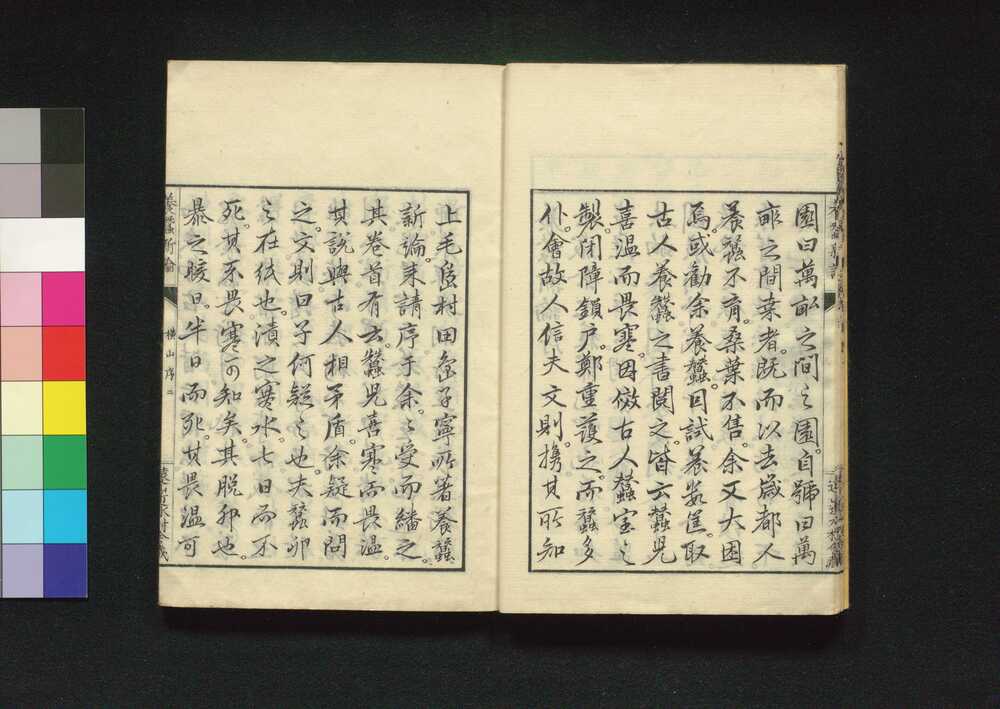 園曰萬畝之間之園。自號曰萬
畝之間桒者。既而以去歳都人
養蠶不育。桑葉不售。余又大困
焉。或勸余養蠶。因試養数筐。取
古人養蠶之書閲之。皆云蠶児
喜温而畏寒。因倣古人蠶室之
製。閉障鎖戸。鄭重護之。而蠶多
仆。會故人信夫文則。携其所知
上毛島村田島子寧所著養蠶
新論。来請序于余。々受而繙之。
其卷首有云。蠶児喜寒而畏温。
其説與古人相矛盾。余疑而問
之。文則曰子何疑之也。夫蠶卵
之在紙也。漬之寒水七日而不
死。其不畏寒可知矣。其脱卵也。
暴之暖日。半日而死。其畏温可
養蠶新論
横山序二